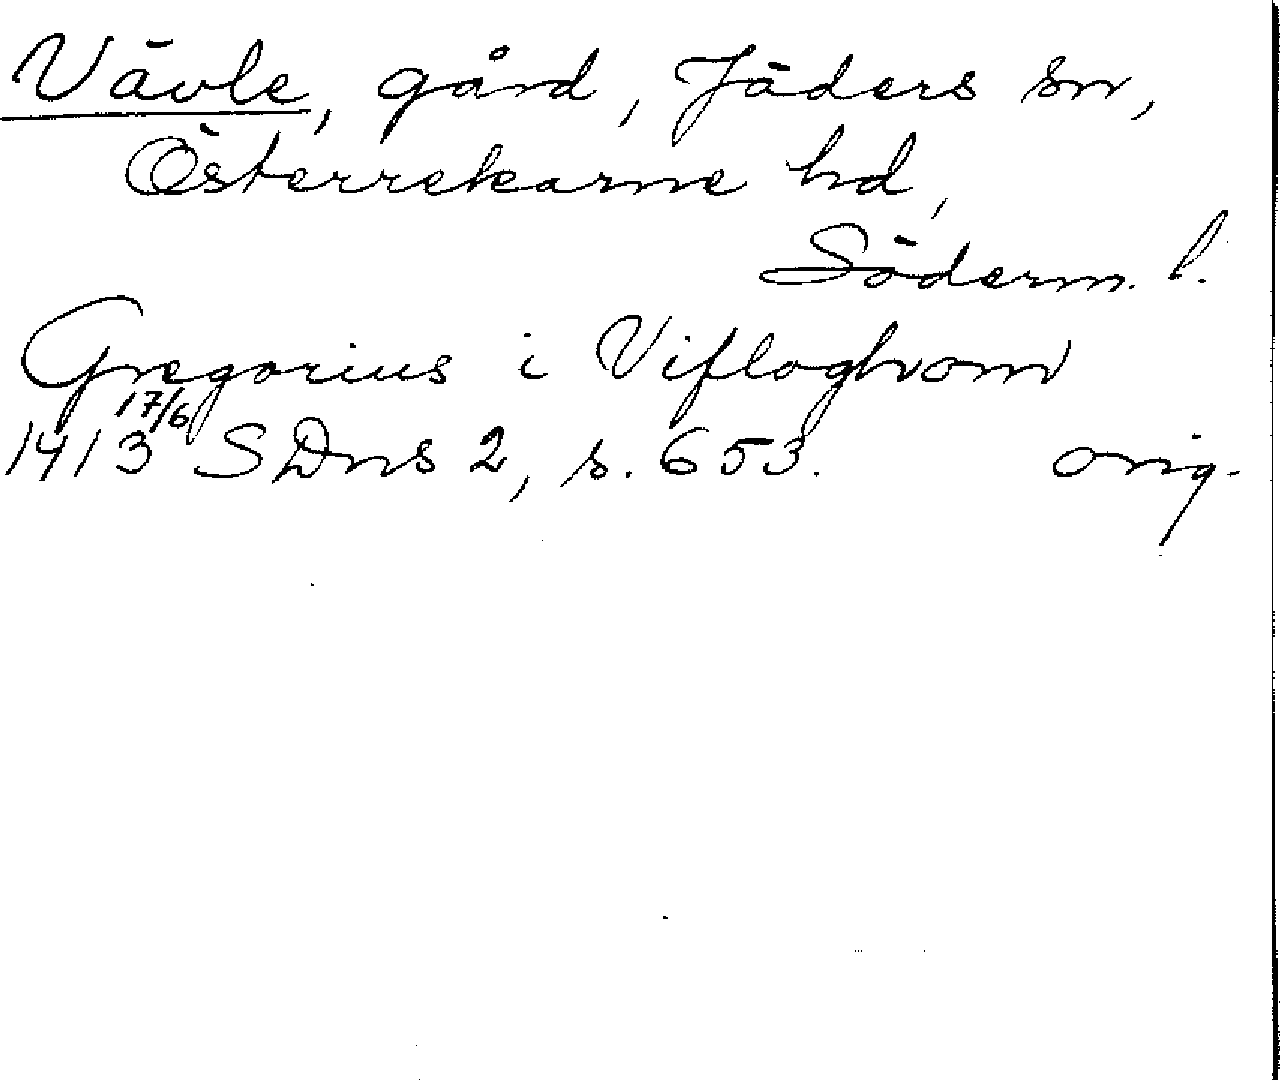 Vävle, gård, Jäders sn,
Österrekarne hd,
Söderm. l.
Gregorius i Vifloghom
1413 17/6 SDns 2, s. 653. orig.